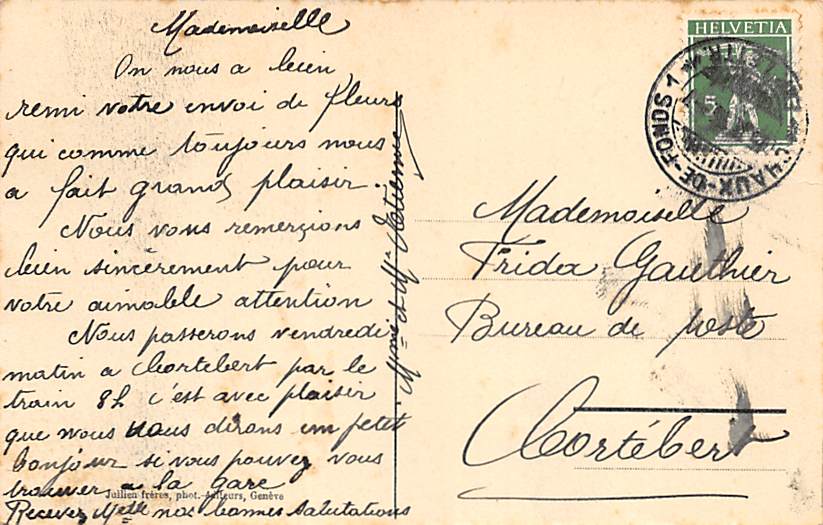 Mademoiselle
On nous a bien
remi votre envoi de fleurs
qui comme toujours nous
a fait grand plaisir.
Nous vous remerçions
bien sincèrement pour
votre aimable attention
Nous passerons vendredi
matin a Cortébert par le
train 8h c'est avec plaisir
que nous vous dirons un petit
bonjour si vous pouvez vous
trouver a la gare
Recevez Melle nos bonnes salutations
Mme et Mr
Jullien frères, phot.-éditeurs, Genève
HELVETIA
5
CHAUX-DE-FONDS 1
Mademoiselle
Frida Gauthier
Bureau de poste
Cortébert